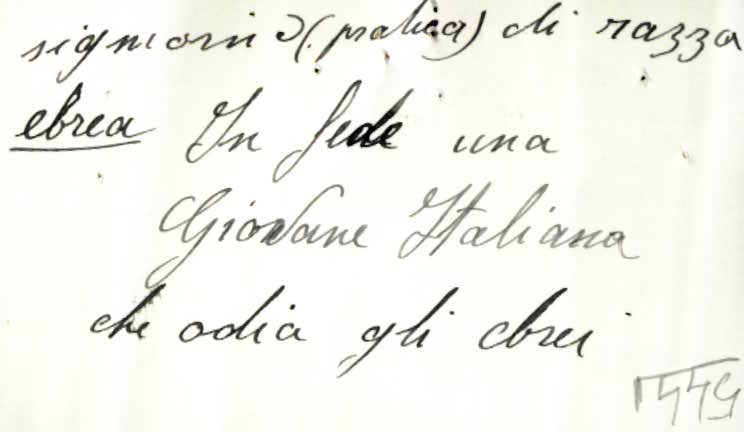 signorin (pratica) di razza
ebrea In fede una
Giovane Italiana
che odia gli ebrei